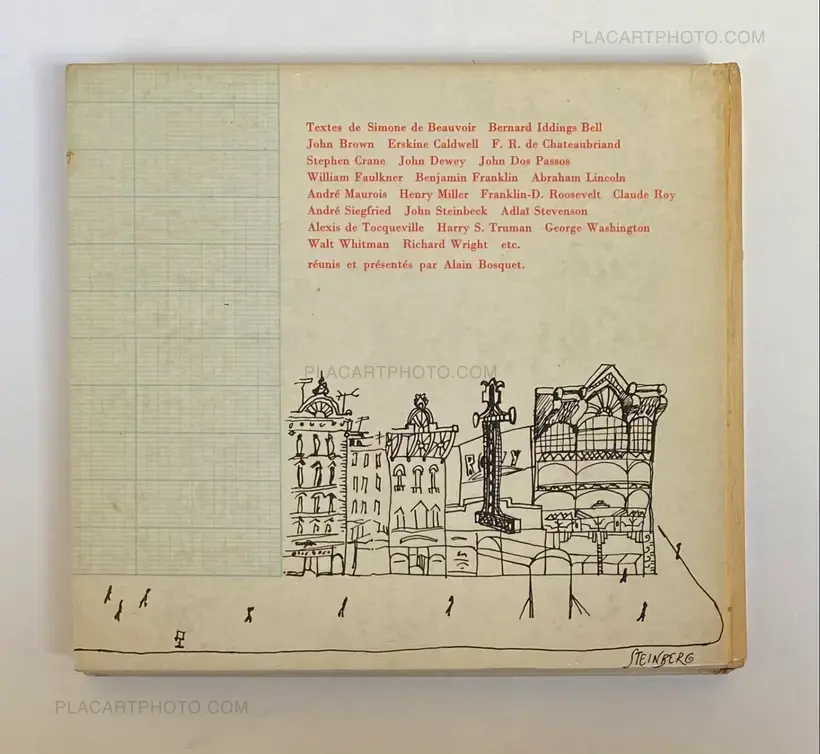 PLACARTPHOTO.COM
Textes de Simone de Beauvoir Bernard Iddings Bell
John Brown Erskine Caldwell F. R. de Chateaubriand
Stephen Crane John Dewey John Dos Passos
William Faulkner Benjamin Franklin Abraham Lincoln
André Maurois Henry Miller Franklin-D. Roosevelt Claude Roy
André Siegfried John Steinbeck Adlaï Stevenson
Alexis de Tocqueville Harry S. Truman George Washington
Walt Whitman Richard Wright etc.
réunis et présentés par Alain Bosquet.
PLACARTPHOTO.COM
STEINBERG
PLACARTPHOTO.COM